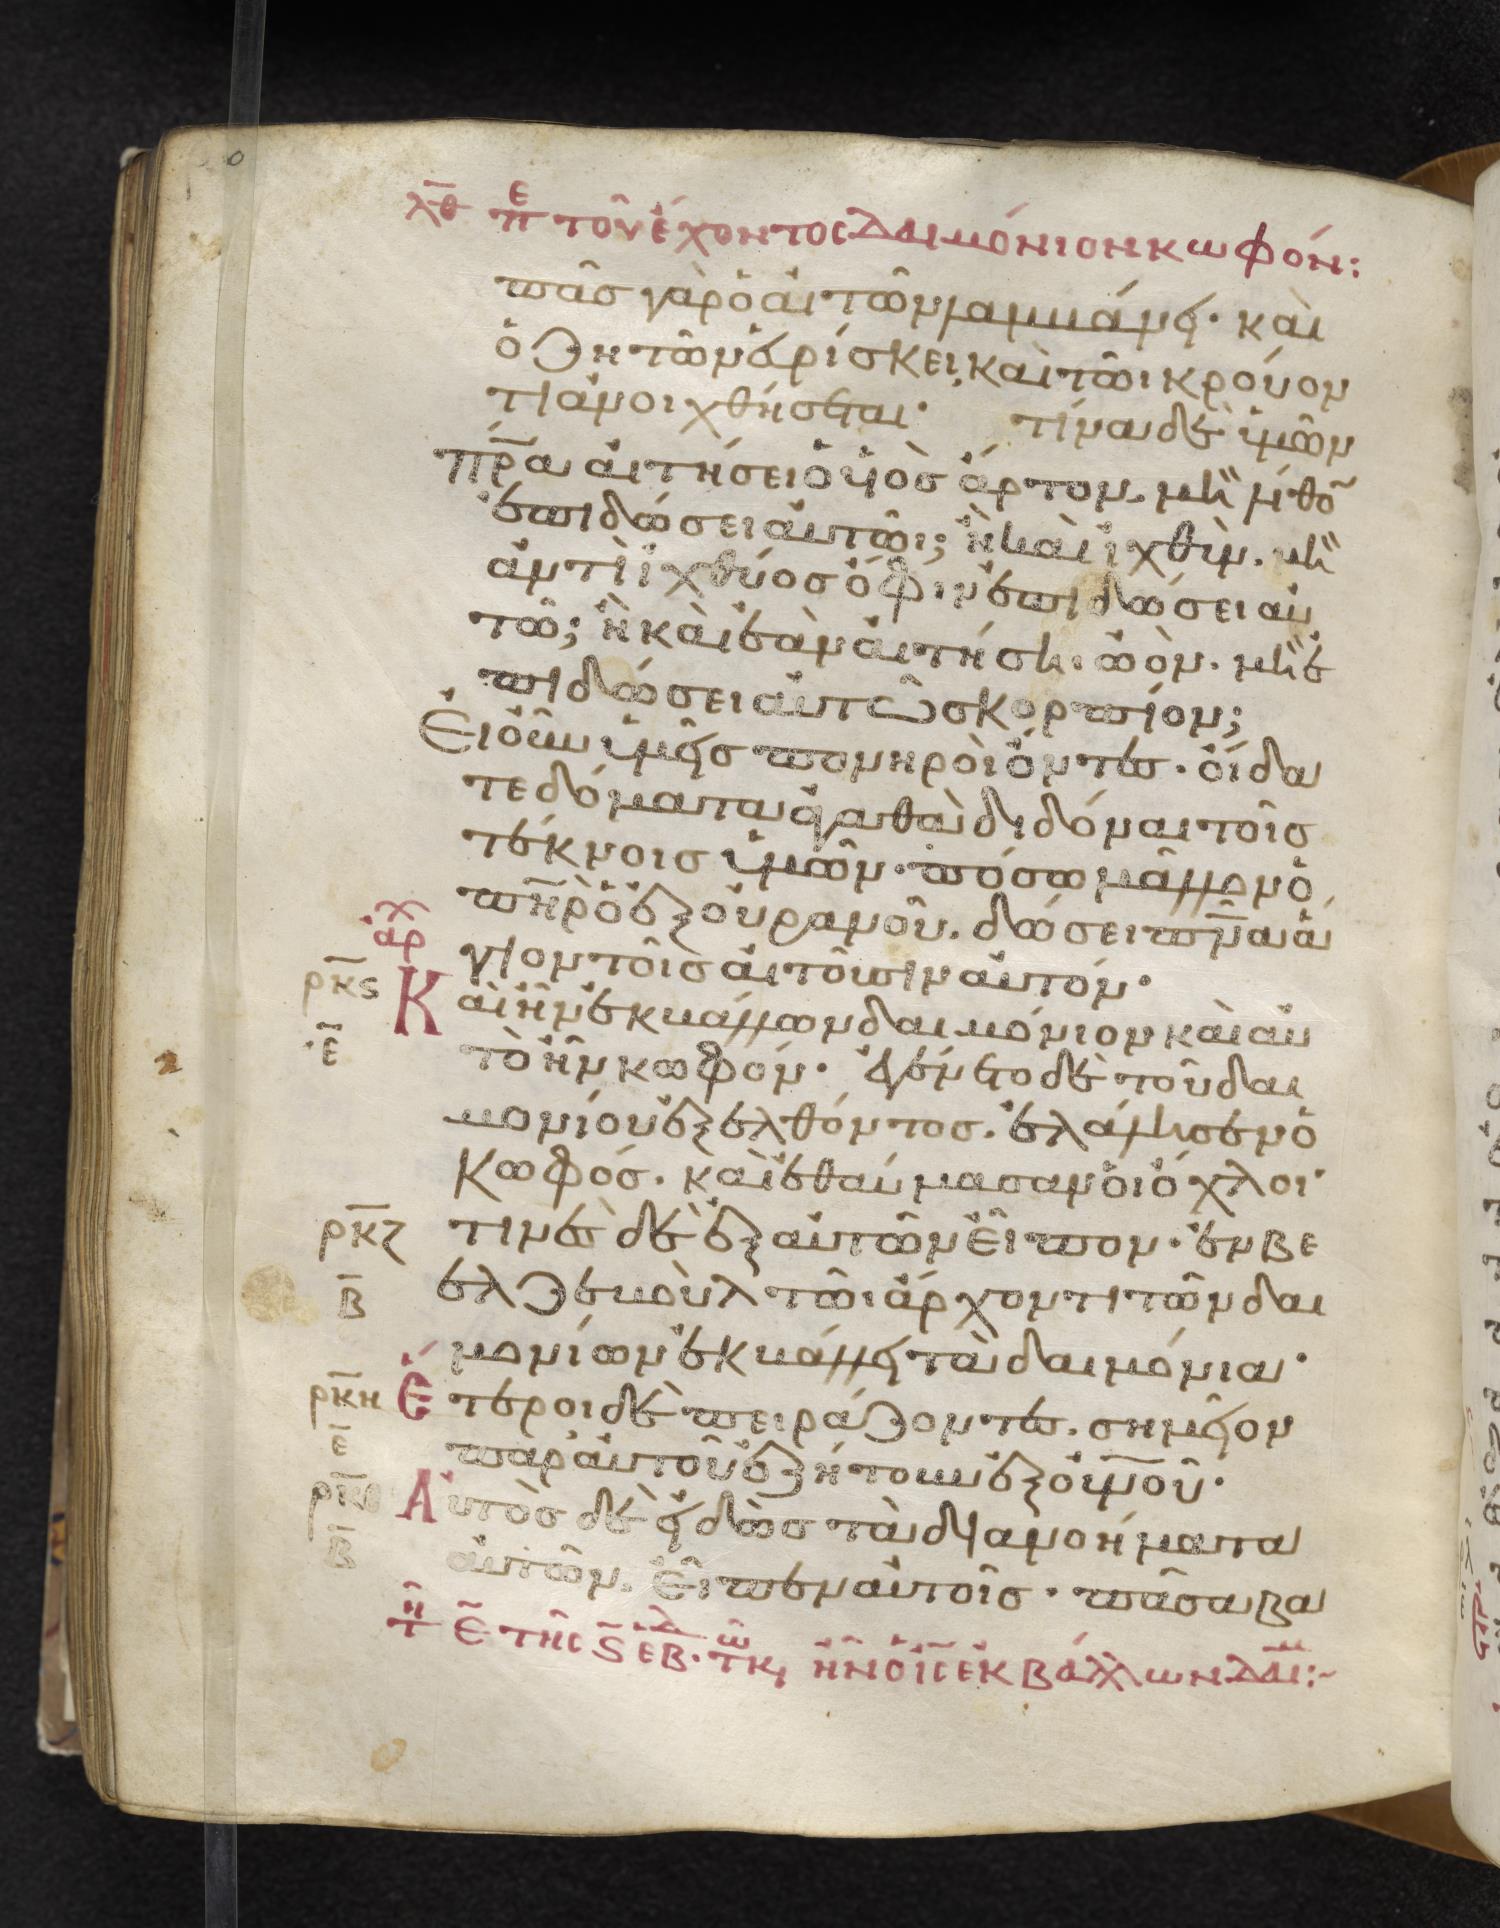 λθ πε τοῦ ἔχοντος δαιμόνιον κωφόν:
πᾶσ γὰρ ὁ αἰτῶν λαμβάνει· καὶ
ὁ ζητῶν εὑρίσκει, καὶ τῶι κρούον
τι ἀνοιχθήσεται· τίνα δὲ ὑμῶν
πρ̅α αἰτήσει ὁ υἱὸσ ἄρτον. μὴ λίθο̅
ἐπιδώσει αὐτῶι; ἢ καὶ ἰχθὺν. μὴ
ἀντὶ ἰχθύοσ ὄφιν ἐπιδώσει αὐ
τῶ; ἢ καὶ ἐὰν αἰτήση. ὠὸν. μὴ ἐ
πιδώσει αὐτῶ σκορπίον;
Εἰ οὖν ὑμεῖσ πονηροὶ ὄντεσ. οἴδα
τε δόματα ἀγαθὰ διδόναι τοῖσ
τέκνοισ ὑμῶν· πόσω μᾶλλον ὁ
πη̅ρ ὁ ἐξ οὐρανοῦ. δώσει πν̅α ἅ
γιον τοῖσ αἰτοῦσιν αὐτόν·
αρχ
ρκς
Καὶ ἦν ἐκβάλλων δαιμόνιον καὶ αὐ
ε
τὸ ἦν κωφόν· ἐγένετο δὲ τοῦ δαι
μονίου ἐξελθόντοσ. ἐλάλησεν ὁ
κωφόσ. καὶ ἐθαύμασαν οἱ ὄχλοι·
ρκζ τινὲσ δὲ ἐξ αὐτῶν εἶπον· ἐν βε
β ελζεβοὺλ τῶι ἄρχοντι τῶν δαι
μονίων ἐκβάλλει τὰ δαιμόνια·
ρκη Ἕτεροι δὲ πειράζοντεσ. σημεῖον
ε παρ' αὐτοῦ ἐζήτουν ἐξ οὐ̅νοῦ·
ρκθ Αὐτὸσ δὲ εἰδὼσ τὰ διανοήματα
β αὐτῶν. εἶπεν αὐτοῖσ· πᾶσα βα
τη ε τῆς ς εβδ· τω κ, ἦν ὁ ι̅ς ἐκβάλλων δαι:~